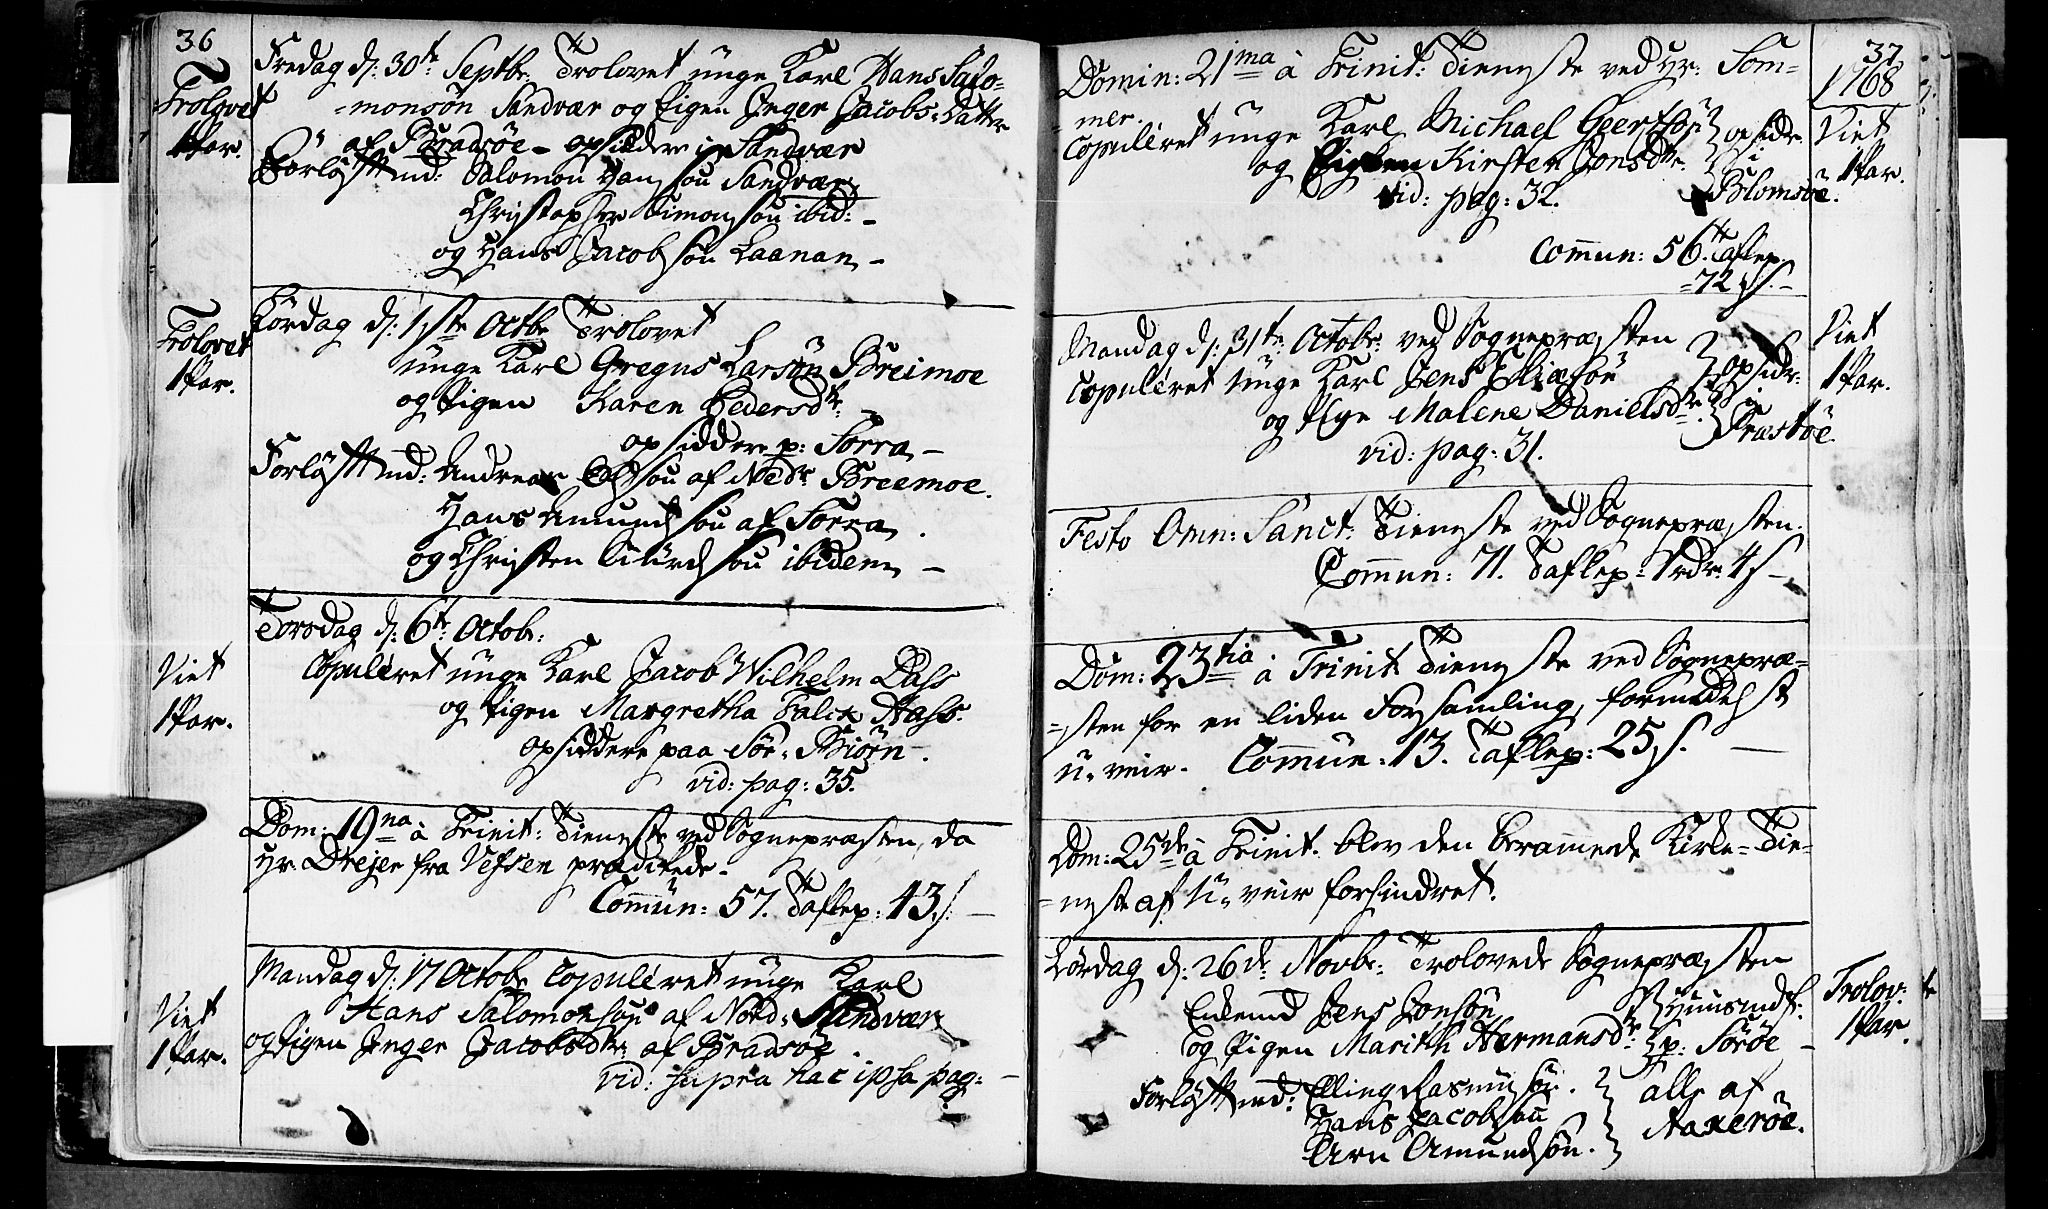 36
Trolovet
1 Par.
Fredag d: 30te Septbr Trolovet unge Karl Hans Salo-
-monsøn Sandvær og Pigen Inger Jacobs-Datter
af Bradsøe - opsiddere i Sandvær
Forløftsmd: Salomon Hansøn Sandvær
Christopher Simonsøn ibid: -
og Hans Jacobsøn Laanan -
Trolovet
1 Par.
Lørdag d: 1ste Octbr Trolovet
unge Karl Gregus Larsøn Breimoe
og Pigen Karen Pedersdtr.
opsiddere p: Torra -
Forløftsmd: Andreas Olsøn af Nedr Breemoe.
Hans Amundsøn af Torra
og Christen Siurdsøn ibidem -
Viet
1 Par.
Torsdag d: 6te Octob:
Copuleret unge Karl Jacob Wilhelm Dass
og Pigen Margretha Falch Hass.
opsiddere paa Sør-Biørn -.
vid: pag: 35.
Dom: 19na à Trinit: Tieneste ved Sognepræsten, da
Hr: Drejer fra Vefsen prædikede.
Com̄un: 57. Taflep: 43 s. -
Viet
1 Par.
Mandag d: 17 Octobr Copuleret unge Karl
Hans Salomonsøn af Nord-Sandvær
og Pigen Inger Jacobsdtr af Bradsøe.
vid: supra hac ipsa pag: -
37
1768
Viet
1 Par.
Domin: 21ma à Trinit: Tieneste ved Hr: Som-
-mer.
Copuleret unge Karl Michael Geertsøn } opsiddr
og Pigen Kirsten Jonsdtr. } i Blomsøe.
vid: pag: 32.
Com̄un: 56. Taflep:
-72 s. -
Viet
1 Par.
Mandag d: 31te Octobr: ved Sognepræsten
Copuleret unge Karl Jens Eliæsøn } opsidr:
og Pige Malene Danielsdtr. } i Præstøe.
vid: pag: 31.
Festo Omn: Sanct: Tieneste ved Sognepræsten.
Com̄un: 71. Taflep: 1 rdr: 4 s -
Dom: 23tia à Trinit Tieneste ved Sognepræ-
-sten for en liden Forsamling, formedelst
U-veir. Com̄un: 13. Taflep: 25 s. -
Dom: 25de à Trinit. blev den beram̄ede Kirke-Tie-
-neste af U-veir forhindret.
Trolovet
1 Par.
Lørdag d: 26de Novbr: Trolovede Sognepræsten
Enkemd Jens Jonsøn } Huusmdsf:
og Pigen Marith Hermansdtr } p: Sørøe -
Forløftsmd: Elling Rasmusøn. } alle af
Hans Jacobsøn } Aakerøe.
Arn Amundsøn. }